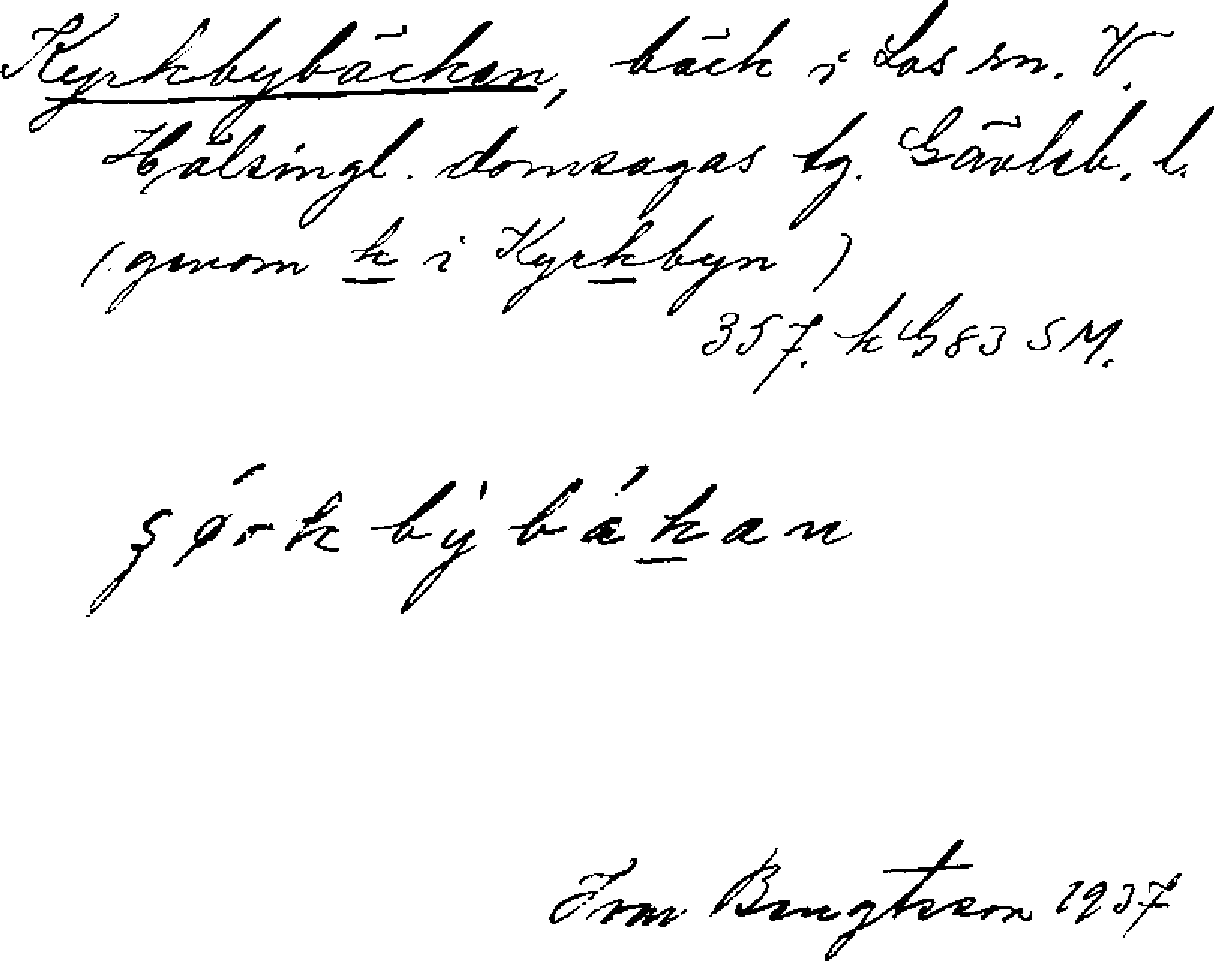 Kyrkbybäcken, bäck i Los sn. V.
Hälsingl. domsagas tg. Gävleb. l.
(genom k i Kyrkbyn)
357. k G83 SM.
bỳbákan
Bengtsson 1937